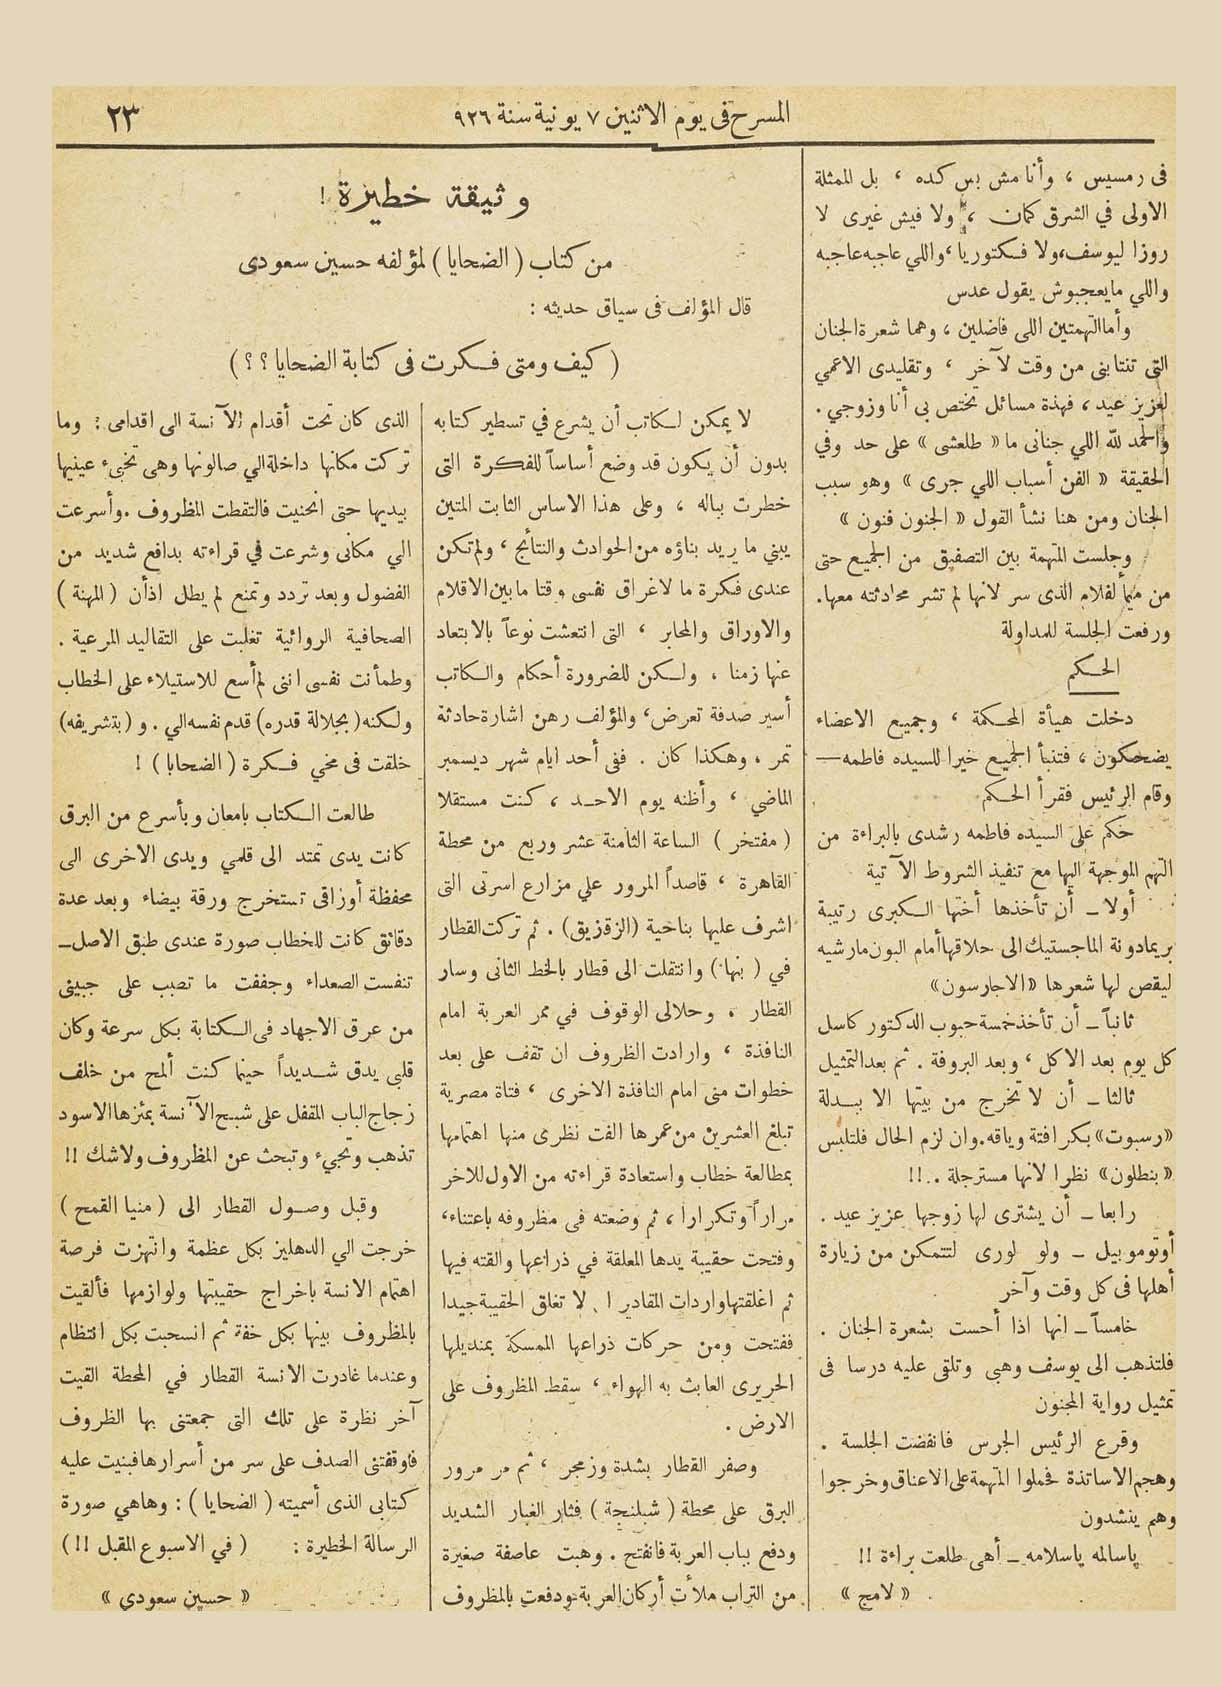 المسرح فى يوم الاثنين ٧ يونية سنة ٩٢٦
٢٣
فى رمسيس ، وأنا مش بس كده ، بل الممثلة
الاولى في الشرق كمان ، ولا فيش غيرى لا
روزا ليوسف، ولا فكتوريا ، واللي عاجبه عاجبه
واللي مايعجبوش يقول عدس
وأما التهمتين اللى فاضلين ، وهما شعرة الجنان
التى تنتابنى من وقت لآخر ، وتقليدى الاعمي
لعزيز عيد ، فهذة مسائل تختص بى أنا وزوجي .
والحمد لله اللي جنانى ما « طلعشى » على حد وفي
الحقيقة « الفن أسباب اللي جرى » وهو سبب
الجنان ومن هنا نشأ القول « الجنون فنون »
وجلست المتهمة بين التصفيق من الجميع حتى
من لفلام الذى سر لانها لم تشر محادثته معها.
ورفعت الجلسة للمداولة
الحكم
دخلت هيأة المحكمة ، وجميع الاعضاء
يضحكون ، فتنبأ الجميع خيرا للسيده فاطمه —
وقام الرئيس فقرأ الحكم
حكم على السيده فاطمه رشدى بالبراءة من
التهم الموجهة اليها مع تنفيذ الشروط الآتية
أولا – أن تأخذها أختها الكبرى رتيبة
بريمادونة الماجستيك الى حلاقها أمام البون مارشيه
ليقص لها شعرها « الاجارسون »
ثانياً – أن تأخذ خمسة حبوب الدكتور كاسل
كل يوم بعد الاكل ، وبعد البروفة . ثم بعد التمثيل
ثالثا – أن لا تخرج من بيتها الا ببدلة
« رسبوت » بكرافتة وياقه. وان لزم الحال فلتلبس
« بنطلون » نظرا لانها مسترجلة ..!!
رابعا – أن يشترى لها زوجها عزيز عيد .
أوتوموبيل – ولو لورى لتتمكن من زيارة
أهلها فى كل وقت وآخر
خامساً – انها اذا أحست بشعرة الجنان .
فلتذهب الى يوسف وهبى وتلقى عليه درسا فى
تمثيل رواية المجنون
وقرع الرئيس الجرس فانفضت الجلسة .
وهجم الاساتذة فحملوا المتهمة على الاعناق وخرجوا
وهم ينشدون
ياسالمه ياسلامه – أهى طلعت براءة !!
« لامج »
وثيقة خطيرة !
من كتاب ( الضحايا ) لمؤلفه حسين سعودى
قال المؤلف فى سياق حديثه :
( كيف ومتى فكرت فى كتابة الضحايا ؟ ؟ )
لا يمكن لكاتب أن يشرع في تسطير كتابه
بدون أن يكون قد وضع أساساً للفكرة التى
خطرت بباله ، وعلى هذا الاساس الثابت المتين
يبني ما يريد بناؤه من الحوادث والنتائج ، ولم تكن
عندى فكرة ما لاغراق نفسى وقتا ما بين الاقلام
والاوراق والمحابر ، التى انتعشت نوعاً بالابتعاد
عنها زمنا ، ولكن للضرورة أحكام والكاتب
أسير صدفة تعرض ، والمؤلف رهن اشارة حادثة
تمر ، وهكذا كان . ففى أحد ايام شهر ديسمبر
الماضي ، وأظنه يوم الاحد ، كنت مستقلا
( مفتخر ) الساعة الثامنة عشر وربع من محطة
القاهرة ، قاصداً المرور علي مزارع اسرتى التى
اشرف عليها بناحية (الزقزيق) . ثم تركت القطار
في ( بنها ) وانتقلت الى قطار بالخط الثانى وسار
القطار ، وحلالى الوقوف في ممر العربة امام
النافذة ، وارادت الظروف ان تقف على بعد
خطوات منى امام النافذة الاخرى ، فتاة مصرية
تبلغ العشرين من عمرها الفت نظرى منها اهتمامها
بمطالعة خطاب واستعادة قراءته من الاول للاخر
مراراً وتكرارا ، ثم وضعته فى مظروفه باعتناء ،
وفتحت حقيبة يدها المعلقة في ذراعها والقته فيها
ثم اغلقتها واردات المقادير الا تغلق الحقيبة جيدا
ففتحت ومن حركات ذراعها الممسكة بمنديلها
الحريرى العابث به الهواء ، سقط المظروف على
الارض .
وصفر القطار بشدة وزمجر ، ثم مر مرور
البرق على محطة ( شبلنجة ) فثار الغبار الشديد
ودفع بباب العربة فانفتح . وهبت عاصفة صغيرة
من التراب ملأت أركان العربة ودفعت بالمظروف
الذى كان تحت أقدام الآنسة الى اقدامى : وما
تركت مكانها داخلة الي صالونها وهى تخبىء عينيها
بيديها حتى انحنيت فالتقطت المظروف . وأسرعت
الي مكانى وشرعت في قراءته بدافع شديد من
الفضول وبعد تردد وتمنع لم يطل اذأن ( المهنة )
الصحافية الروائية تغلبت على التقاليد المرعية .
وطمأنت نفسى اننى لم أسع للاستيلاء على الخطاب
ولكنه ( بجلالة قدره ) قدم نفسه الي . و ( بتشريفه )
خلقت فى مخي فكرة ( الضحايا ) !
طالعت الكتاب بامعان وبأسرع من البرق
كانت يدى تمتد الى قلمي ويدى الاخرى الى
محفظة أوزاقى تستخرج ورقة بيضاء وبعد عدة
دقائق كانت للخطاب صورة عندى طبق الاصل –
تنفست الصعداء وجففت ما تصبب على جبينى
من عرق الاجهاد فى الكتابة بكل سرعة وكان
قلبى يدق شديداً حينما كنت ألمح من خلف
زجاج الباب المقفل على شبح الآنسة بمئزها الاسود
تذهب وتجيء وتبحث عن المظروف ولاشك !!
وقبل وصول القطار الى ( منيا القمح )
خرجت الي الدهليز بكل عظمة وانتهزت فرصة
اهتمام الانسة باخراج حقيبتها ولوازمها فألقيت
بالمظروف بينها بكل خفة ثم انسحبت بكل انتظام
وعندما غادرت الانسة القطار في المحطة القيت
آخر نظرة على تلك التى جمعتنى بها الظروف
فاوقفتنى الصدف على سر من أسرارها فبنيت عليه
كتابى الذى أسميته ( الضحايا ) : وهاهي صورة
الرسالة الخطيرة : ( في الاسبوع المقبل !! )
« حسين سعودي »